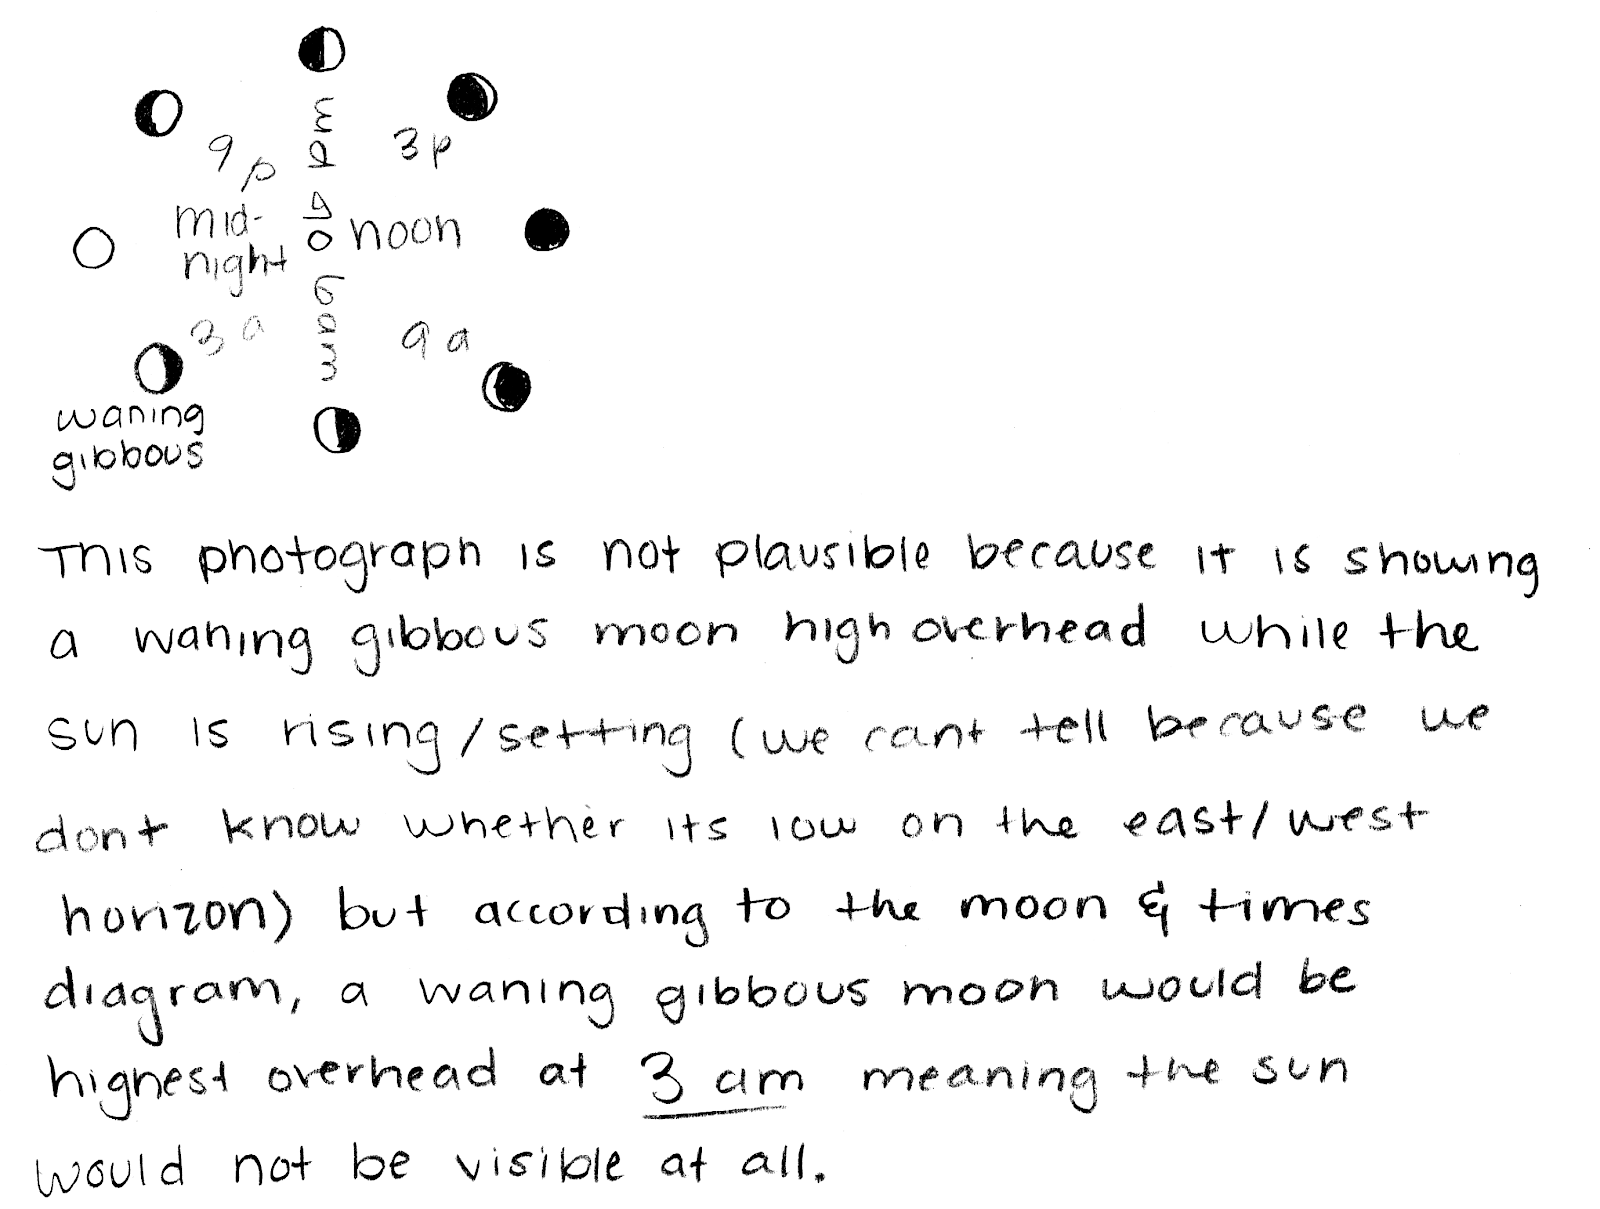 9p
6pm
3p
mid-
night
noon
3 a
6am
9 a
waning
gibbous
This photograph is not plausible because it is showing
a waning gibbous moon high overhead while the
sun is rising/setting (we cant tell because we
dont know whether its low on the east/west
horizon) but according to the moon & times
diagram, a waning gibbous moon would be
highest overhead at 3 am meaning the sun
would not be visible at all.